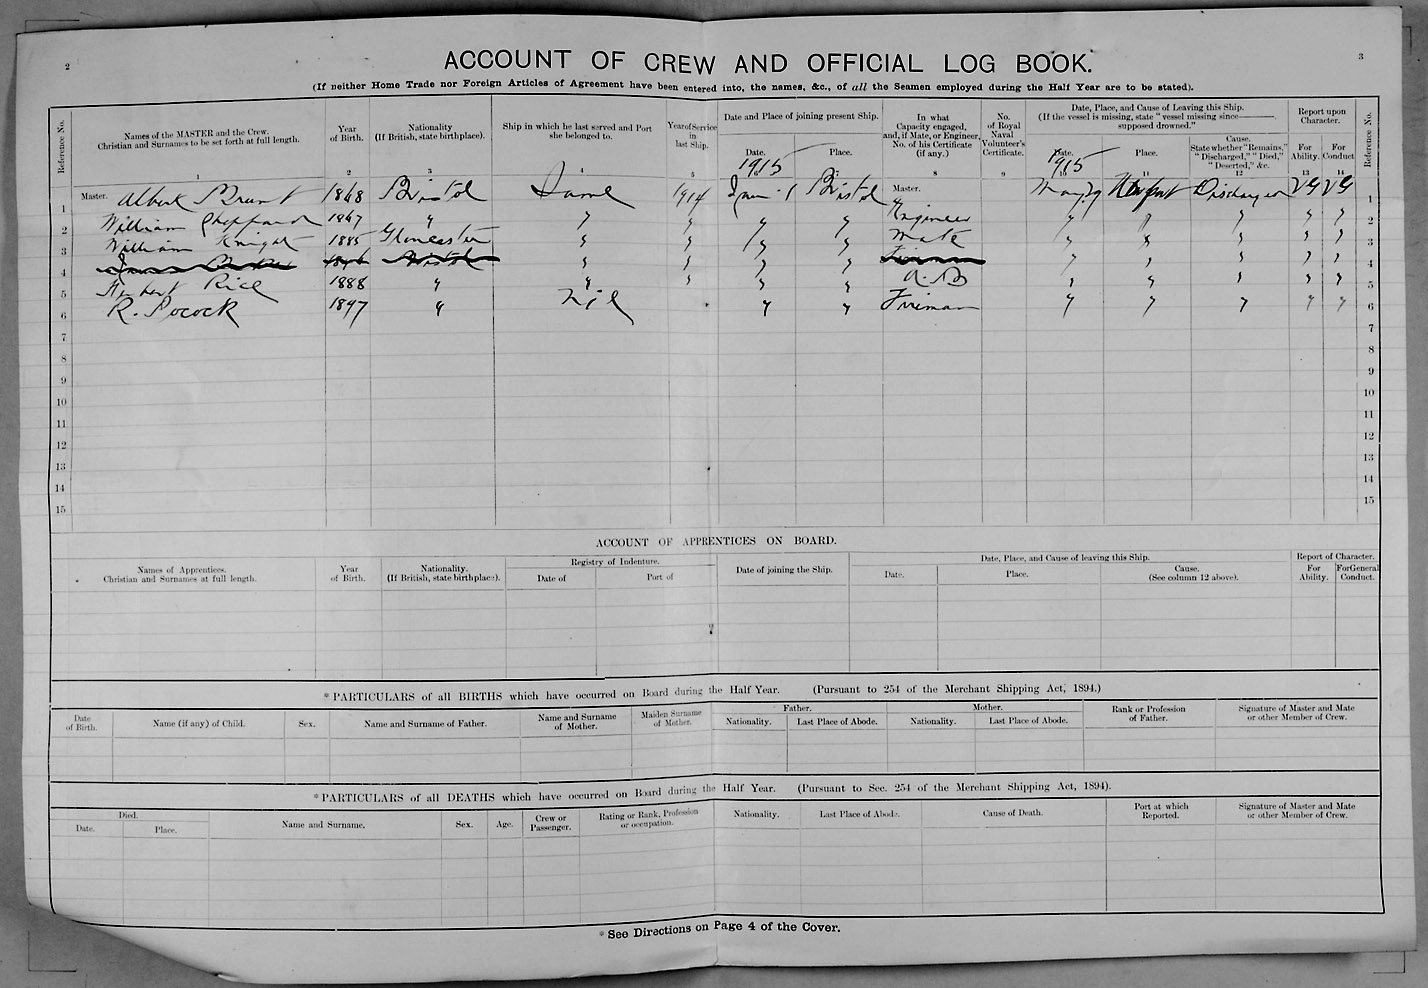 2
3
ACCOUNT OF CREW AND OFFICIAL LOG BOOK.
(If neither Home Trade nor Foreign Articles of Agreement have been entered into, the names, &c., of all the Seamen employed during the Half Year are to be stated).
Reference No. | Names of the MASTER and the Crew. Christian and Surnames to be set forth at full length. | Year of Birth. | Nationality (If British, state birthplace). | Ship in which he last served and Port she belonged to. | Year of Service in last Ship. | Date and Place of joining present Ship. | In what Capacity engaged, and, if Mate, or Engineer, No. of his Certificate (if any.) | No. of Royal Naval Volunteer's Certificate. | Date, Place, and Cause of Leaving this Ship. (If the vessel is missing, state "vessel missing since———, supposed drowned." | Report upon Character. | Reference No.
Date. | Place. | Date. | Place. | Cause. State whether "Remains," "Discharged," "Died," "Deserted," &c. | For Ability. | For Conduct
1915 | 1915
1 | 2 | 3 | 4 | 5 | 8 | 9 | 10 | 11 | 12 | 13 | 14
1 | Master. Albert Brunt | 1868 | Bristol | Same | 1914 | Jan 1 | Bristol | Master. | May 29 | Newport | Discharged | VG | VG | 1
2 | William Sheppard | 1867 | " | " | " | " | " | Engineer | " | " | " | " | " | 2
3 | William Knight | 1885 | Gloucester | " | " | " | " | Mate | " | " | " | " | " | 3
4 | Bristol | " | " | " | " | Fireman | " | " | " | " | " | 4
5 | Herbert Rice | 1888 | " | " | " | " | " | A.B | " | " | " | " | " | 5
6 | R. Pocock | 1897 | " | Nil | " | " | Fireman | " | " | " | " | " | 6
7 | 7
8 | 8
9 | 9
10 | 10
11 | 11
12 | 12
13 | 13
14 | 14
15 | 15
ACCOUNT OF APPRENTICES ON BOARD.
Names of Apprentices. Christian and Surnames at full length. | Year of Birth. | Nationality. (If British, state birthplace). | Registry of Indenture. | Date of joining the Ship. | Date, Place, and Cause of leaving this Ship. | Report of Character.
Date of | Port of | Date. | Place. | Cause. (See column 12 above). | For Ability. | For General Conduct.
*PARTICULARS of all BIRTHS which have occurred on Board during the Half Year. (Pursuant to 254 of the Merchant Shipping Act, 1894.)
Date of Birth. | Name (if any) of Child. | Sex. | Name and Surname of Father. | Name and Surname of Mother. | Maiden Surname of Mother. | Father. | Mother. | Rank or Profession of Father. | Signature of Master and Mate or other Member of Crew.
Nationality. | Last Place of Abode. | Nationality. | Last Place of Abode.
*PARTICULARS of all DEATHS which have occurred on Board during the Half Year. (Pursuant to Sec. 254 of the Merchant Shipping Act, 1894).
Died. | Name and Surname. | Sex. | Age. | Crew or Passenger. | Rating or Rank, Profession or occupation. | Nationality. | Last Place of Abode. | Cause of Death. | Port at which Reported. | Signature of Master and Mate or other Member of Crew.
Date. | Place.
*See Directions on Page 4 of the Cover.